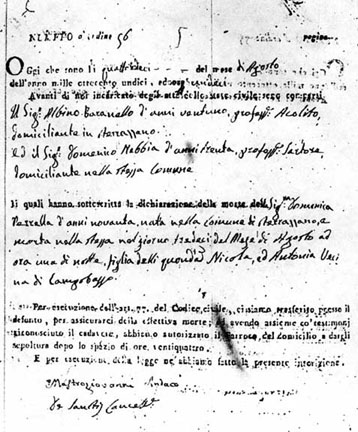 NUMERO d'ordine 56
Oggi che sono li quattordici del mese di Agosto
dell'anno mille ottocento undici, ad ore
Avanti di noi incaricato degli atti dello stato civile sono comparsi
Il Sig. Albino Baranello d'anni ventuno, profess. Acolito,
domiciliante in Ferrazzano
ed il Sig. Domenico Nebbia d'anni trenta, profess. Sartore
domiciliante nella stessa Comune
li quali hanno sottoscritta la dichiarazione della morte della Sig. Domenica
d'anni novanta, nata nella Comune di Ferrazzano, e
morta nella stessa nel giorno tredeci del Mese di Agosto ad
ora una di notte, figlia delli quondam Nicola, ed Antonia
na di Campobasso.
Per esecuzione dell'art. 77. del Codice civile, ci siamo trasferiti presso il
defunto, per assicurarci della effettiva morte; ed avendo assieme co' testimonj
riconosciuto il cadavere, abbiamo autorizzato il Parroco del domicilio a dargli
sepoltura dopo lo spazio di ore ventiquattro.
E per esecuzione della legge ne abbiamo fatto la presente iscrizione.
Mastrogiovanni Sindaco